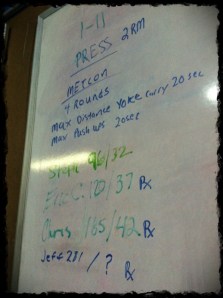 1-11
PRESS 2RM
METCON
4 ROUNDS
Max Distance Yoke Carry 20 sec
Max Push ups 20sec
96/32
Eric C. 170/37 Rx
Chris 165/42 Rx
Jeff 231 / ? Rx